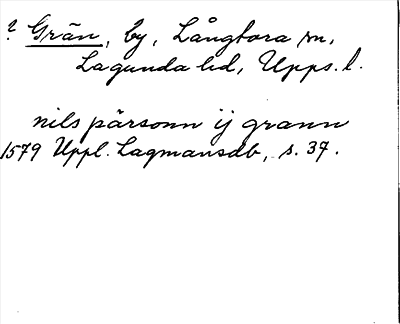 ? Grän, by, Långtora sn,
Lagunda hd, Upps. l.
nils pärsonn ij grann
1579 Uppl. Lagmansdb, s. 37.